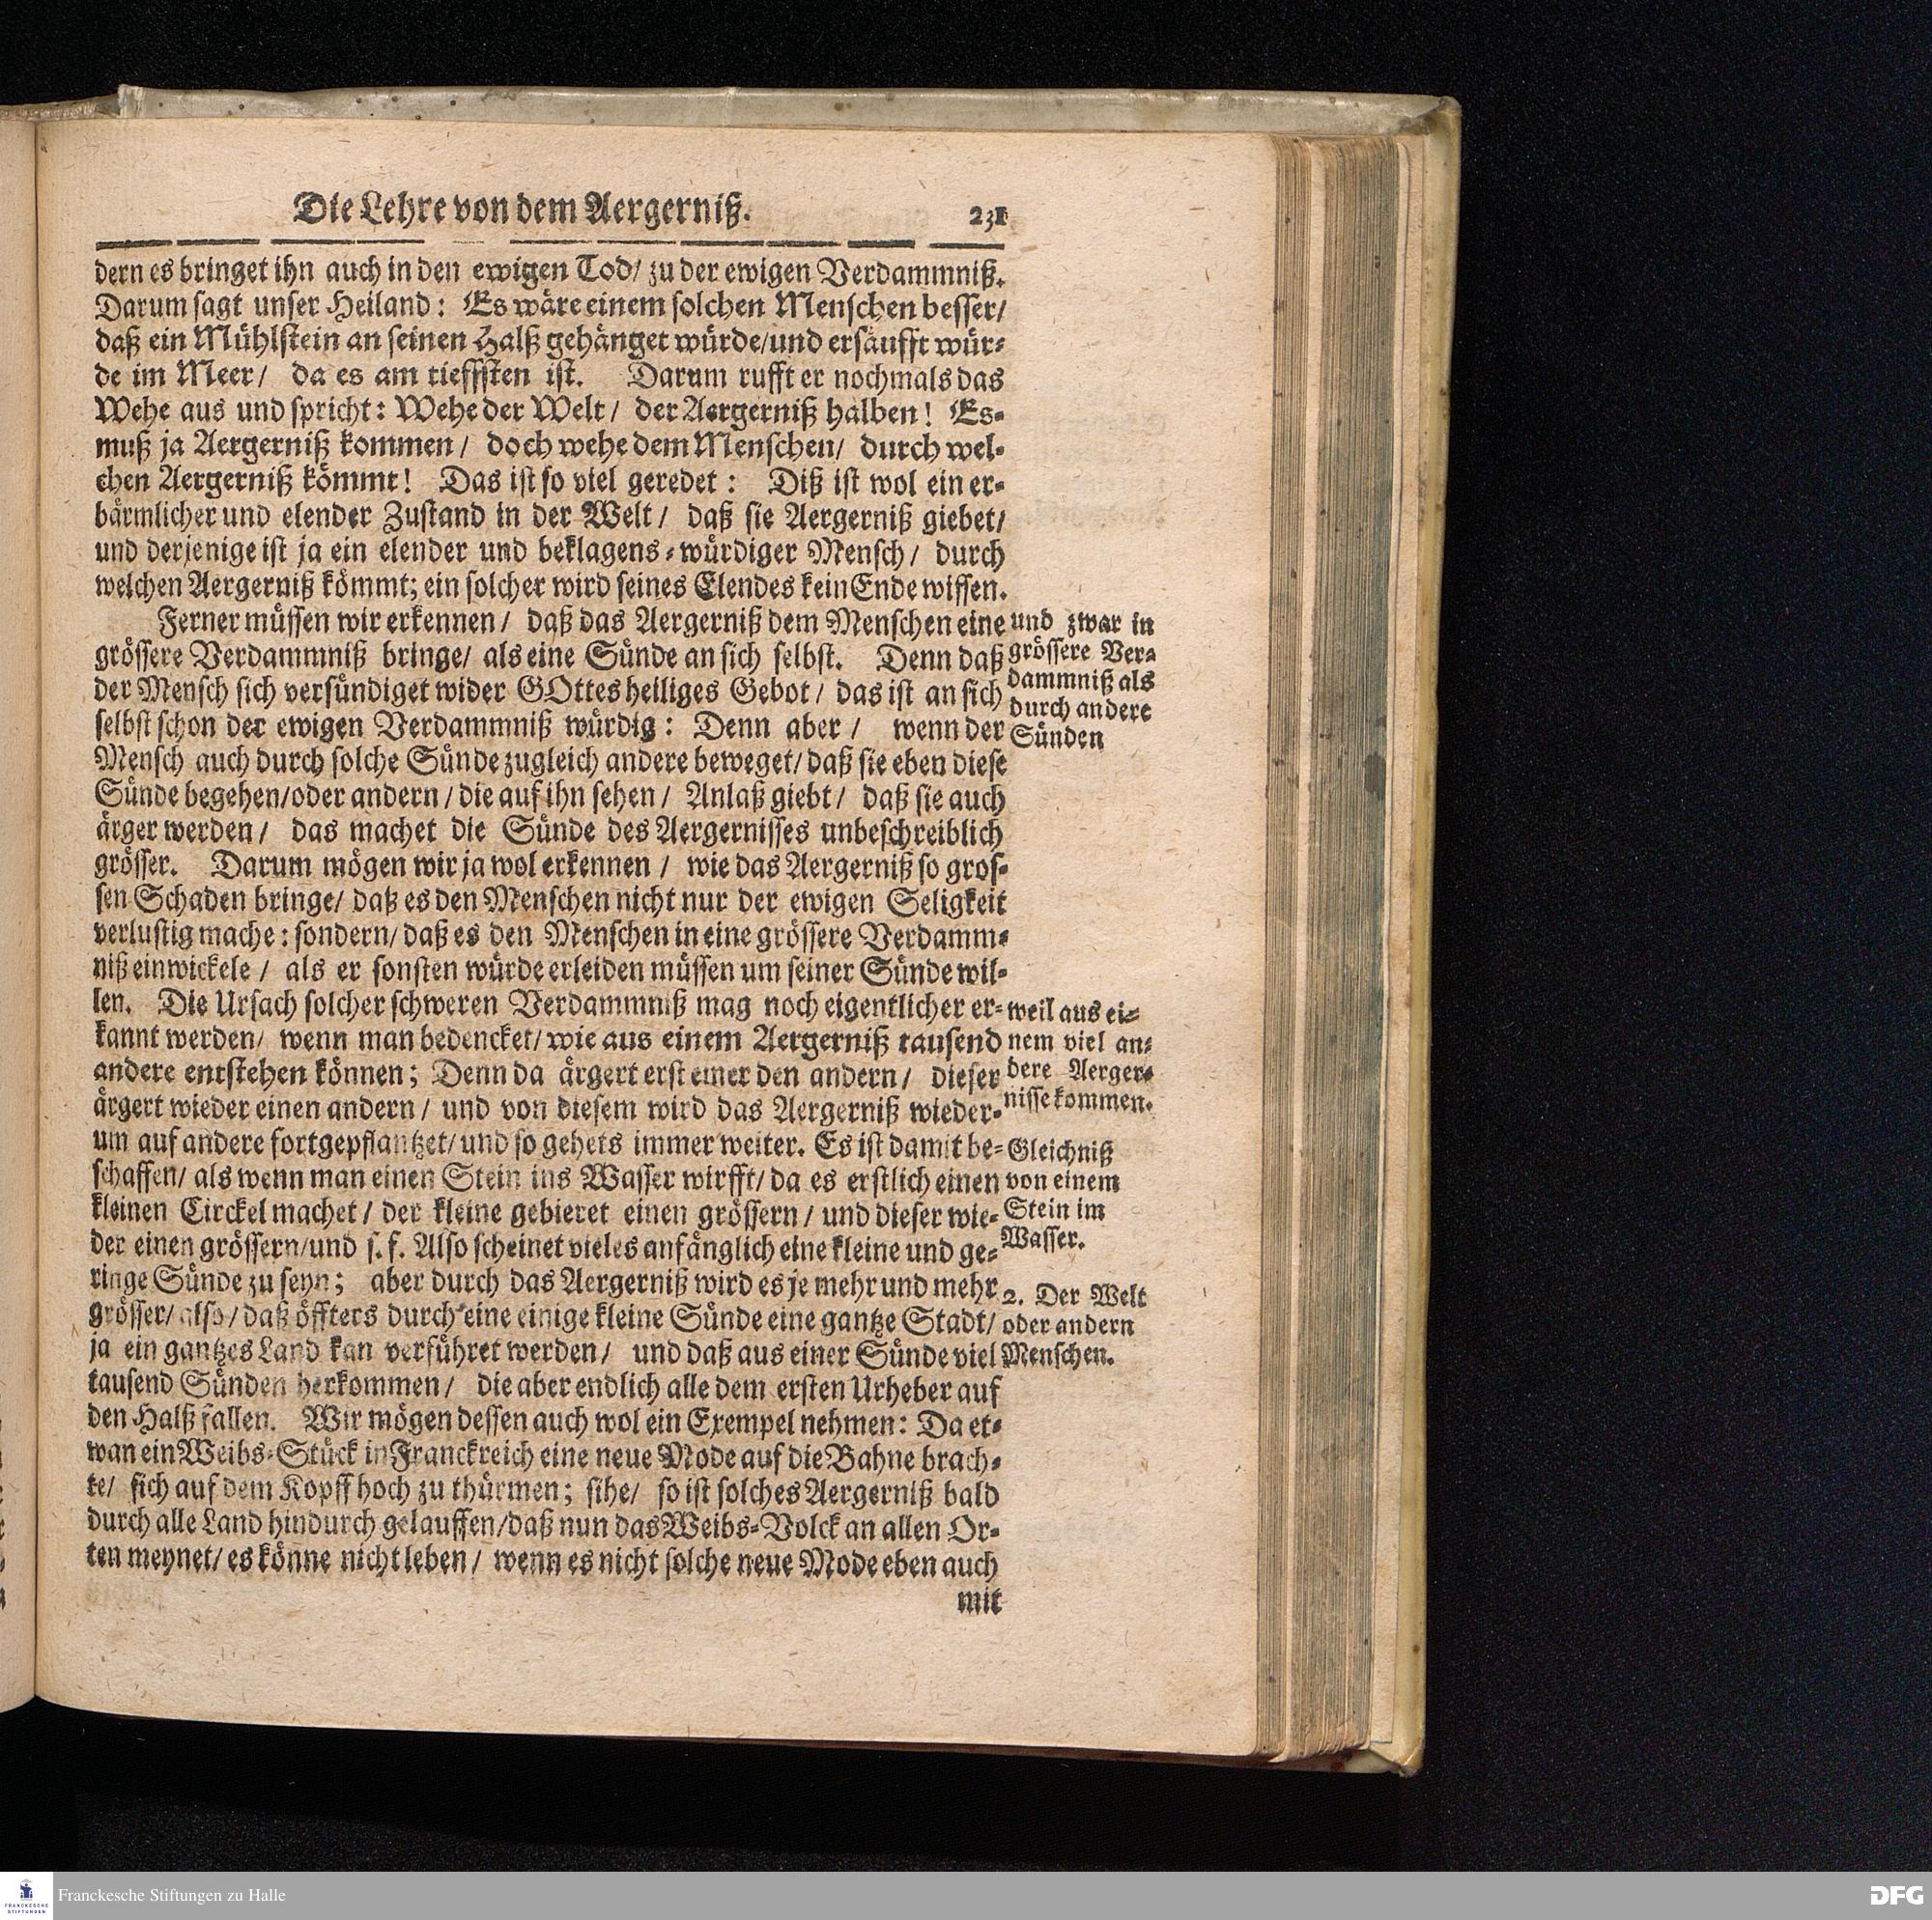 Die Lehre von dem Aergerniß. 231
dern es bringet ihn auch in den ewigen Tod/ zu der ewigen Verdammniß.
Darum sagt unser Heiland: Es wäre einem solchen Menschen besser/
daß ein Mühlstein an seinen Halß gehänget würde/und ersäufft wür-
de im Meer/ da es am tieffsten ist. Darum rufft er nochmals das
Wehe aus und spricht: Wehe der Welt/ der Aergerniß halben! Es-
muß ja Aergerniß kommen/ doch wehe dem Menschen/ durch wel-
chen Aergerniß kömmt! Das ist so viel geredet: Diß ist wol ein er-
bärmlicher und elender Zustand in der Welt/ daß sie Aergerniß giebet/
und derjenige ist ja ein elender und beklagens-würdiger Mensch/ durch
welchen Aergerniß kömmt; ein solcher wird seines Elendes kein Ende wissen.
Ferner müssen wir erkennen/ daß das Aergerniß dem Menschen eine
grössere Verdammniß bringe/ als eine Sünde an sich selbst. Denn daß
der Mensch sich versündiget wider GOttes heiliges Gebot/ das ist an sich
selbst schon der ewigen Verdammniß würdig: Denn aber/ wenn der
Mensch auch durch solche Sünde zugleich andere beweget/ daß sie eben diese
Sünde begehen/oder andern/die auf ihn sehen/ Anlaß giebt/ daß sie auch
ärger werden/ das machet die Sünde des Aergernisses unbeschreiblich
grösser. Darum mögen wir ja wol erkennen/ wie das Aergerniß so gros-
sen Schaden bringe/ daß es den Menschen nicht nur der ewigen Seligkeit
verlustig mache: sondern/ daß es den Menschen in eine grössere Verdamm-
niß einwickele/ als er sonsten würde erleiden müssen um seiner Sünde wil-
len. Die Ursach solcher schweren Verdammniß mag noch eigentlicher er-
kannt werden/ wenn man bedencket/ wie aus einem Aergerniß tausend
andere entstehen können; Denn da ärgert erst einer den andern/ dieser
ärgert wieder einen andern/ und von diesem wird das Aergerniß wieder-
um auf andere fortgepflantzet/ und so gehets immer weiter. Es ist damit be-
schaffen/ als wenn man einen Stein ins Wasser wirfft/ da es erstlich einen
kleinen Circkel machet/ der kleine gebieret einen grössern/ und dieser wie-
der einen grössern/und s. f. Also scheinet vieles anfänglich eine kleine und ge-
ringe Sünde zu seyn; aber durch das Aergerniß wird es je mehr und mehr
grösser/ also/ daß öffters durch eine einige kleine Sünde eine gantze Stadt/
ja ein gantzes Land kan verführet werden/ und daß aus einer Sünde viel
tausend Sünden herkommen/ die aber endlich alle dem ersten Urheber auf
den Halß fallen. Wir mögen dessen auch wol ein Exempel nehmen: Da et-
wan ein Weibs-Stück in Franckreich eine neue Mode auf die Bahne brach-
te/ sich auf dem Kopff hoch zu thürmen; sihe/ so ist solches Aergerniß bald
durch alle Land hindurch gelauffen/daß nun das Weibs-Volck an allen Or-
ten meynet/ es könne nicht leben/ wenn es nicht solche neue Mode eben auch
mit
und zwar in
grössere Ver-
dammniß als
durch andere
Sünden
weil aus ei-
nem viel an-
dere Aerger-
nisse kommen.
Gleichniß
von einem
Stein im
Wasser.
2. Der Welt
oder andern
Menschen.
FRANCKESCHE
STIFTUNGEN
Franckesche Stiftungen zu Halle
DFG